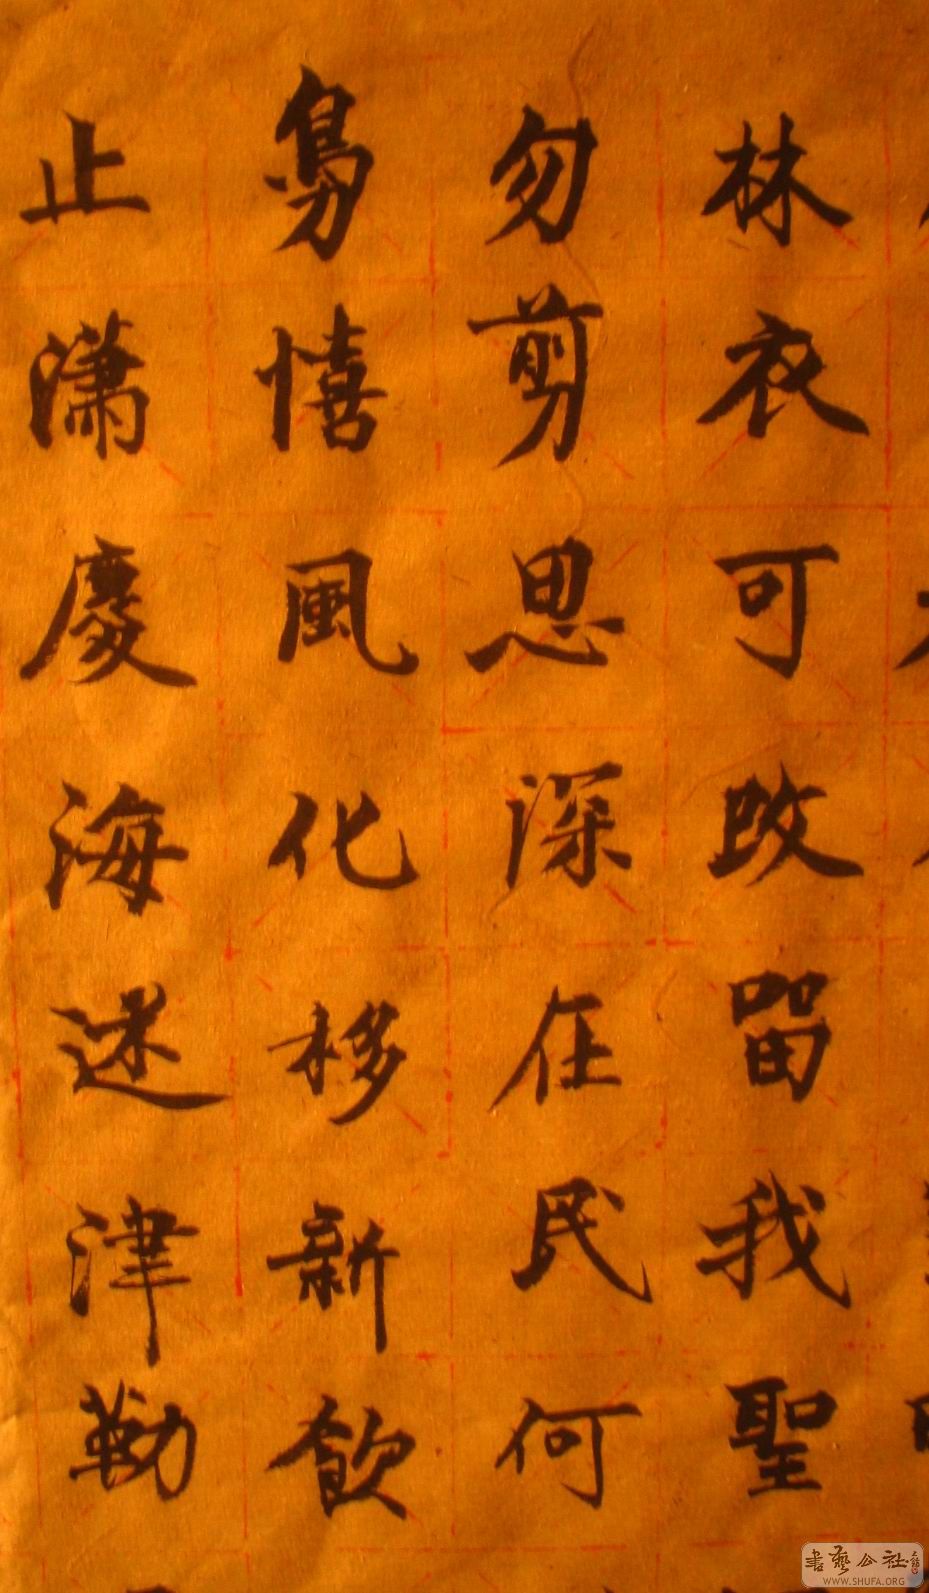 林衣可改留我聖
勿剪思深在民何
憘風化移新飲
止瀟慶海述津勒
書藝公社
WWW.SHUFA.ORG